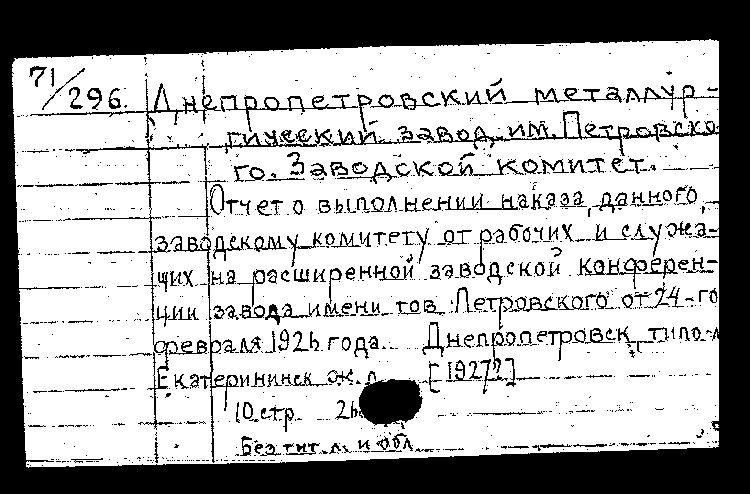 71/296. Днепропетровский металлур-
гический завод им. Петровско
го. Заводской комитет.
Отчет о выполнении наказа, данного,
заводскому комитету от рабочих и служа-
щих на расширенной заводской конферен-
ции завода имени тов. Петровского от 24-го
февраля 1926 года. Днепропетровск, типо-л
Екатерининск. ж. д. [1927?]
10 стр. 26
Без тит. л. и обл.